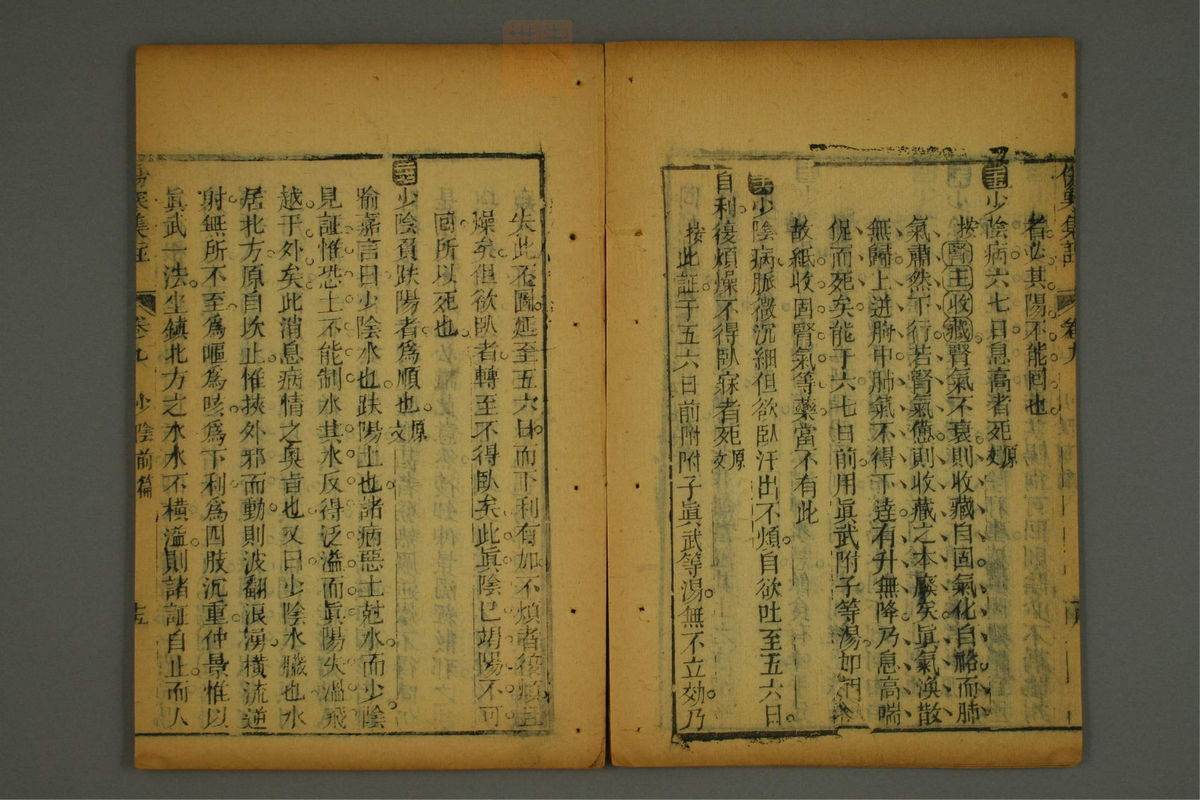 傷寒集註 卷九
者必其陽不能回也
少陰病六七日息高者死原文
按腎主收藏腎氣不衰則收藏自固氣化自裕而肺
氣肅然下行若腎氣憊則收藏之本廢矣眞氣渙散
無歸上迸胸中肺氣不得下達有升無降乃息高喘
促而死矣能于六七日前用眞武附子等湯如
故紙收固腎氣等藥當不有此
少陰病脈微沉細但欲臥汗出不煩自欲吐至五六日
自利復煩燥不得臥寐者死原文
按此証于五六日前附附子眞武等湯無不立効乃
失此不圖延至五六日而下利有加不煩者復煩且
燥矣但欲臥者轉至不得臥矣此眞陰已竭陽不可
回所以死也
少陰負趺陽者爲順也原文
喻嘉言曰少陰水也趺陽土也諸病惡土尅水而少陰
見証惟恐土不能制水其水反得泛溢而眞陽失溫飛
越于外矣此消息病情之奥旨也又曰少陰水臟也水
居北方原自坎止惟挾外邪而動則波翻浪湧橫流逆
射無所不至爲嘔爲咳爲下利爲四肢沉重仲景惟以
眞武一法坐鎮北方之水水不橫溢則諸証自止而人
傷寒集註 卷九 少陰前篇 十五